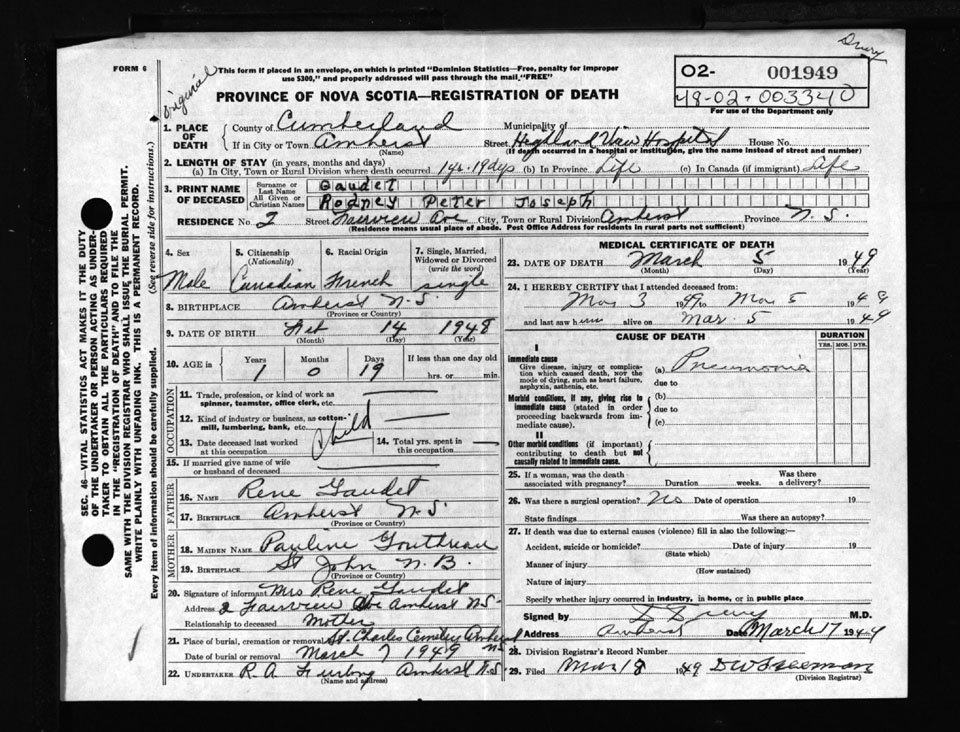 Drury
FORM 6
original
This form if placed in an envelope, on which is printed "Dominion Statistics—Free, penalty for improper
use $300," and properly addressed will pass through the mail "FREE"
O2- 001949
48-02-003340
For use of the Department only
PROVINCE OF NOVA SCOTIA—REGISTRATION OF DEATH
1. PLACE OF DEATH
County of Cumberland Municipality of
If in City or Town Amherst Street Highland View Hospital House No.
(Name) (If death occurred in a hospital or institution, give the name instead of street and number)
2. LENGTH OF STAY (in years, months and days)
(a) In City, Town or Rural Division where death occurred 1 yr. 19 dys (b) In Province Life (c) In Canada (if immigrant) Life
3. PRINT NAME OF DECEASED
Surname or Last Name Gaudet
All Given or Christian Names Rodney Peter Joseph
RESIDENCE No. 2 Street Fairview Ave City, Town or Rural Division Amherst Province N.S.
(Residence means usual place of abode. Post Office Address for residents in rural parts not sufficient)
4. Sex 5. Citizenship (Nationality) 6. Racial Origin 7. Single, Married, Widowed or Divorced (write the word)
Male Canadian French single
8. BIRTHPLACE Amherst N.S.
(Province or Country)
9. DATE OF BIRTH Feb 14 1948
(Month) (Day) (Year)
10. AGE in Years Months Days If less than one day old
1 0 19 hrs. or min.
OCCUPATION
11. Trade, profession, or kind of work as
spinner, teamster, office clerk, etc.
12. Kind of industry or business, as cotton-
mill, lumbering, bank, etc.
child
13. Date deceased last worked
at this occupation
14. Total yrs. spent in
this occupation
15. If married give name of wife
or husband of deceased
FATHER
16. NAME Rene Gaudet
17. BIRTHPLACE Amherst N.S.
(Province or Country)
MOTHER
18. MAIDEN NAME Pauline Gouthreau
19. BIRTHPLACE St John N.B.
(Province or Country)
20. Signature of informant Mrs Rene Gaudet
Address 2 Fairview Ave Amherst N.S.
Relationship to deceased Mother
21. Place of burial, cremation or removal St. Charles Cemetery Amherst
NS
Date of burial or removal March 7 1949
22. UNDERTAKER R. A. Furlong Amherst N.S
(Name and address)
MEDICAL CERTIFICATE OF DEATH
23. DATE OF DEATH March 5 1949
(Month) (Day) (Year)
24. I HEREBY CERTIFY that I attended deceased from:
Mar 3 1949 to Mar 5 1949
and last saw him alive on Mar. 5 1949
CAUSE OF DEATH DURATION
YRS. MOS. DYS.
I
Immediate cause
Give disease, injury or complica-
tion which caused death, not the
mode of dying, such as heart failure,
asphyxia, asthenia, etc.
(a) Pneumonia
due to
Morbid conditions, if any, giving rise to
immediate cause (stated in order
proceeding backwards from im-
mediate cause).
(b)
due to
(c)
II
Other morbid conditions (if important)
contributing to death but not
causally related to immediate cause.
25. If a woman, was the death
associated with pregnancy? Duration weeks. Was there a delivery?
26. Was there a surgical operation? No Date of operation 19
State findings Was there an autopsy?
27. If death was due to external causes (violence) fill in also the following:—
Accident, suicide or homicide? Date of injury 19
(State which)
Manner of injury
(How sustained)
Nature of injury
Specify whether injury occurred in industry, in home, or in public place
Signed by M.D.
Address Amherst Date March 17 1949
28. Division Registrar's Record Number
29. Filed Mar 18 1949 D W Freeman
(Division Registrar)
SEC. 46—VITAL STATISTICS ACT MAKES IT THE DUTY
OF THE UNDERTAKER OR PERSON ACTING AS UNDER-
TAKER TO OBTAIN ALL THE PARTICULARS REQUIRED
IN THE "REGISTRATION OF DEATH" AND TO FILE THE
SAME WITH THE DIVISION REGISTRAR WHO SHALL ISSUE THE BURIAL PERMIT.
WRITE PLAINLY WITH UNFADING INK. THIS IS A PERMANENT RECORD.
Every item of information should be carefully supplied. (See reverse side for instructions.)